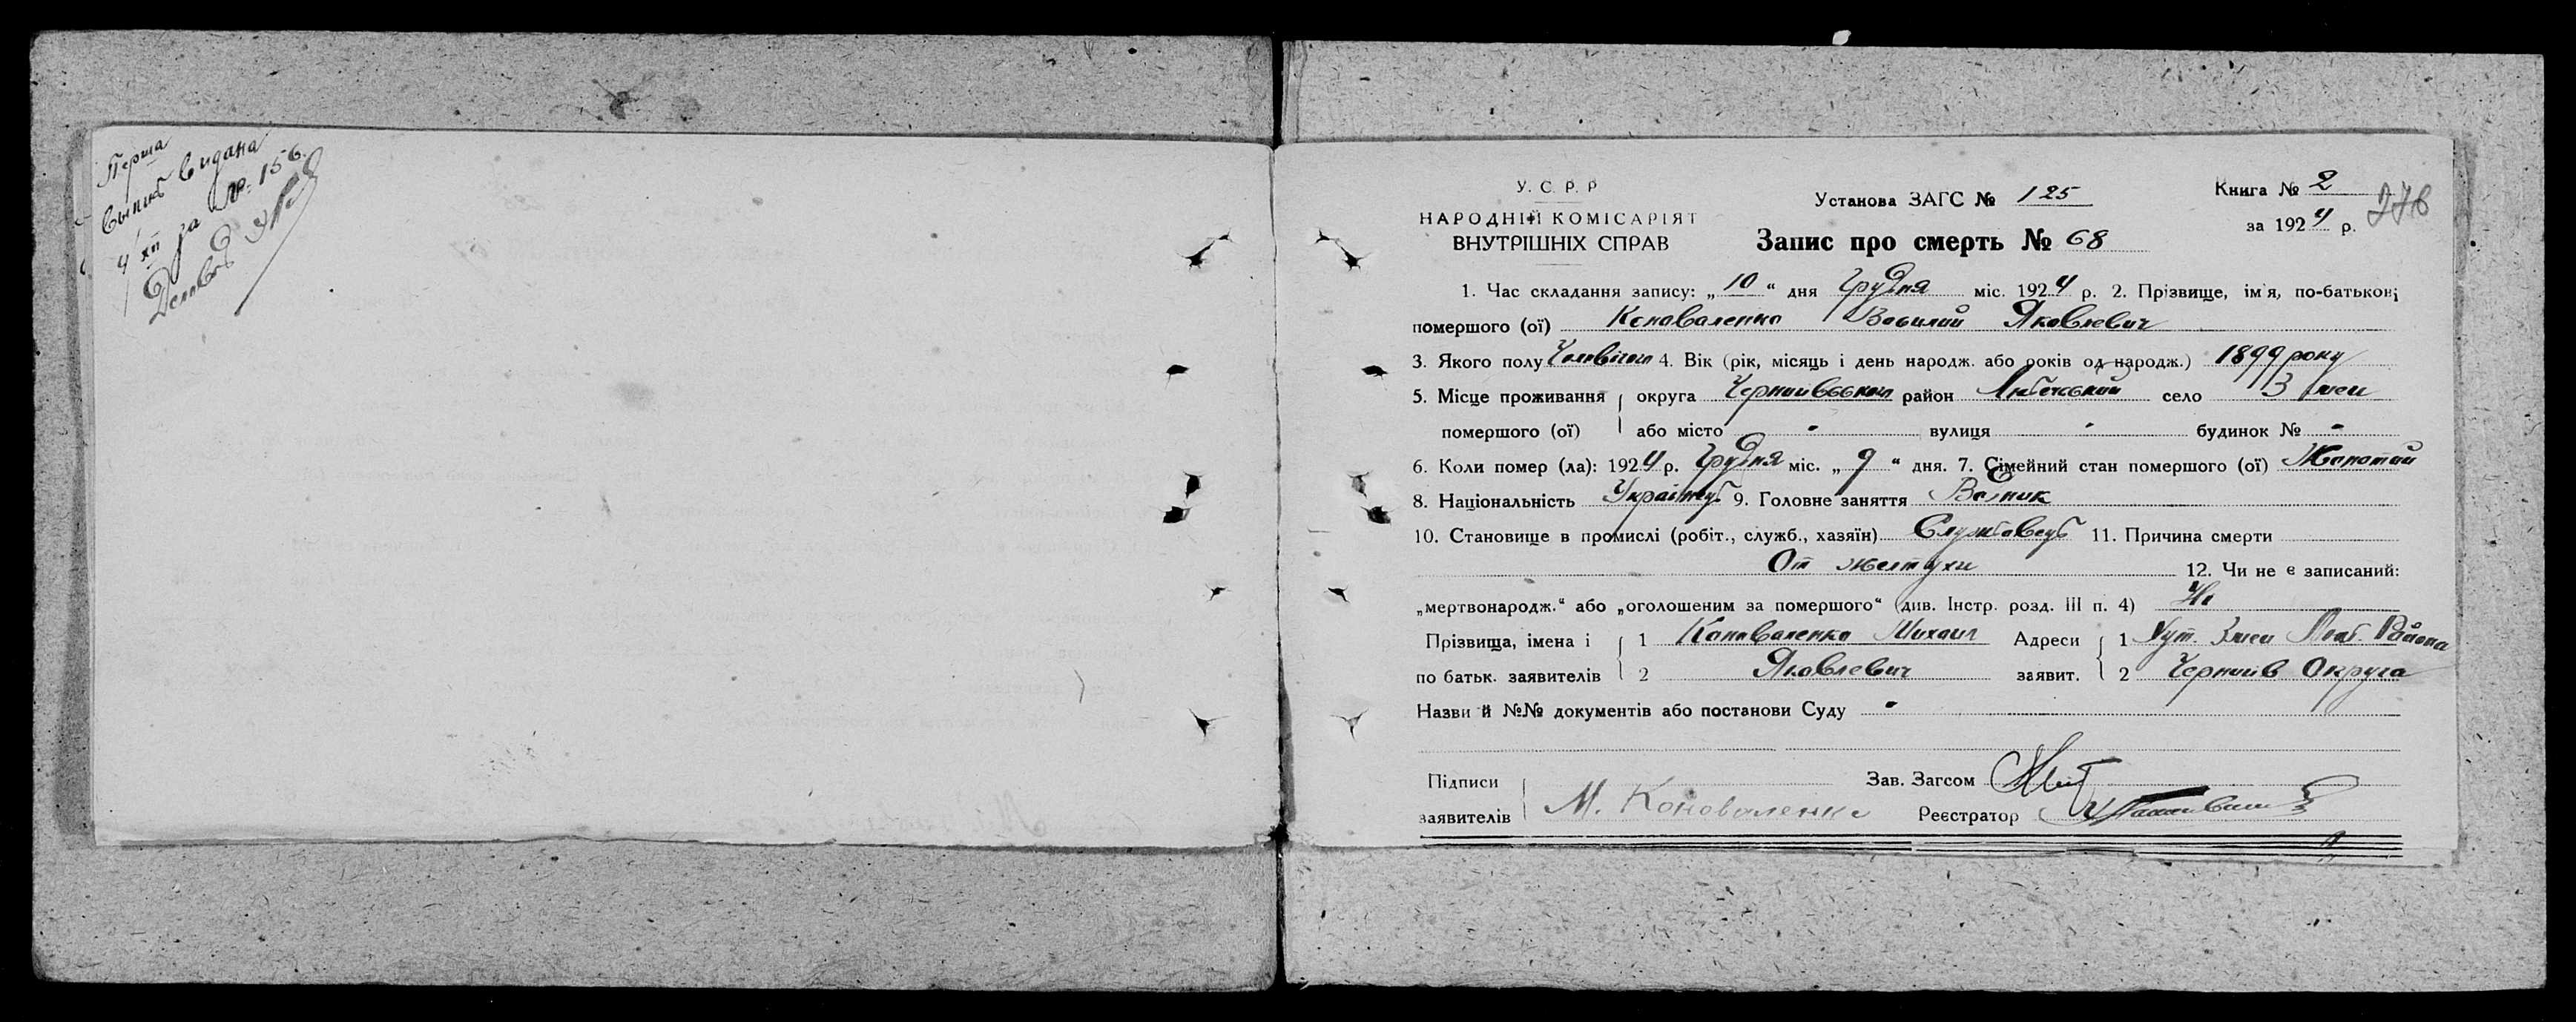 Перша
выпись видана
4/XII за № 156.
У. С. Р. Р
НАРОДНІЙ КОМІСАРІЯТ
ВНУТРІШНІХ СПРАВ
Установа ЗАГС № 125
Запис про смерть № 68
Книга № 2
за 1924 р.
276
1. Час складання запису: „10“ дня Грудня міс. 1924 р. 2. Прізвище, ім'я, по-батькові
помершого (ої) Конаваленко Василий Яковлевич
3. Якого полу Чоловічого 4. Вік (рік, місяць і день народж. або років од народж.) 1899 року
5. Місце проживання округа Чернигівського район Любечський село Змеи
помершого (ої) або місто - вулиця - будинок № -
6. Коли помер (ла): 1924 р. Грудня міс. „9“ дня. 7. Сімейний стан помершого (ої) Жонатий
8. Національність Українець 9. Головне заняття
10. Становище в промислі (робіт., служб., хазяїн) Службовець 11. Причина смерти
От желтухи 12. Чи не є записаний:
„мертвонародж.“ або „оголошеним за помершого“ (див. Інстр. розд. III п. 4) Ні
Прізвища, імена і 1 Конаваленко Михаил Адреси 1 Хут. Змеи Люб. Района
по батьк. заявителів 2 Яковлевич заявит. 2 Чернигів Округа
Назви й №№ документів або постанови Суду -
Підписи Зав. Загсом
заявителів М. Коноваленко Реєстратор